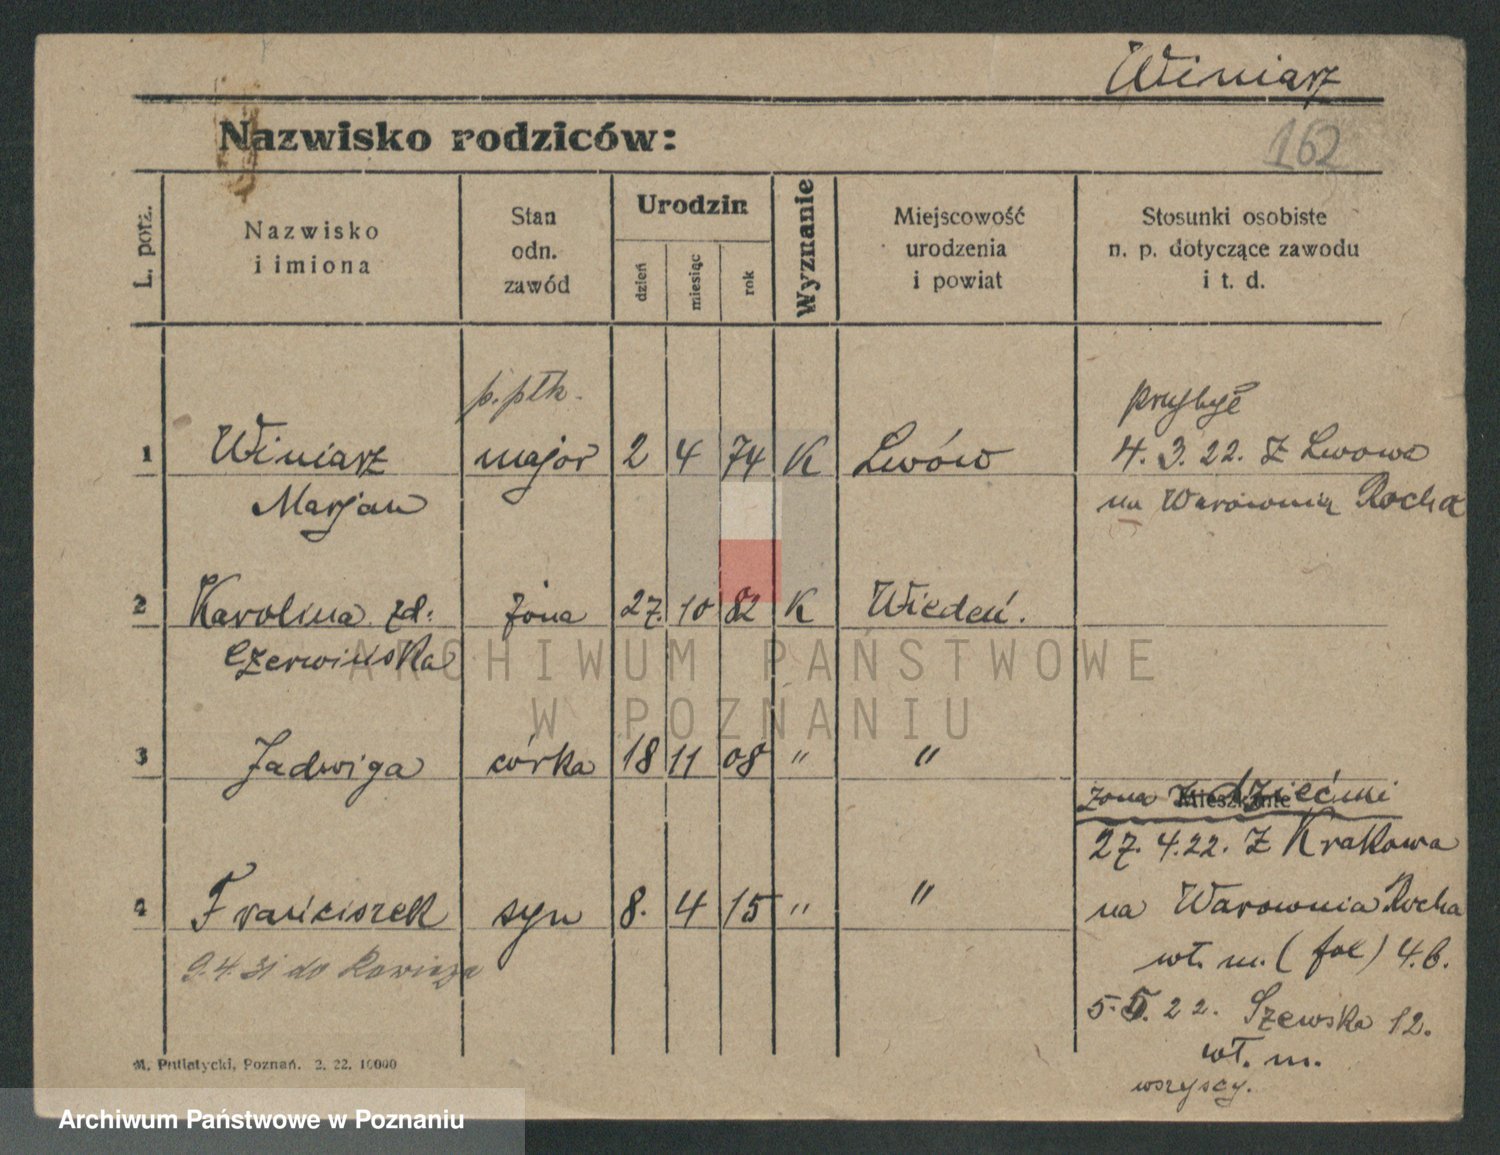 Winiarz
Nazwisko rodziców:
162
L. porz.
Nazwisko
i imiona
Stan
odn.
zawód
Urodzin
dzień
miesiąc
rok
Wyznanie
Miejscowość
urodzenia
i powiat
Stosunki osobiste
n. p. dotyczące zawodu
i t. d.
p. płk.
przybył
1 Winiarz major 2 4 74 K Lwów 4. 3. 22. z Lwowa
Marjan na Warownią Rocha
2 Karolina zd. żona 27. 10 82 K Wiedeń.
Czerwińska
3 Jadwiga córka 18 11 08 " "
Mieszkanie
żona z dziećmi
27. 4. 22. z Krakowa
4 Franciszek syn 8. 4 15 " " na Warownia Rocha
9.4.31 do
wł. m. ( ) 4.6.
5. 5. 22. Szewska 12.
wł. m.
wszyscy.
M. Putiatycki, Poznań. 2. 22. 10000
ARCHIWUM PAŃSTWOWE
W POZNANIU
Archiwum Państwowe w Poznaniu